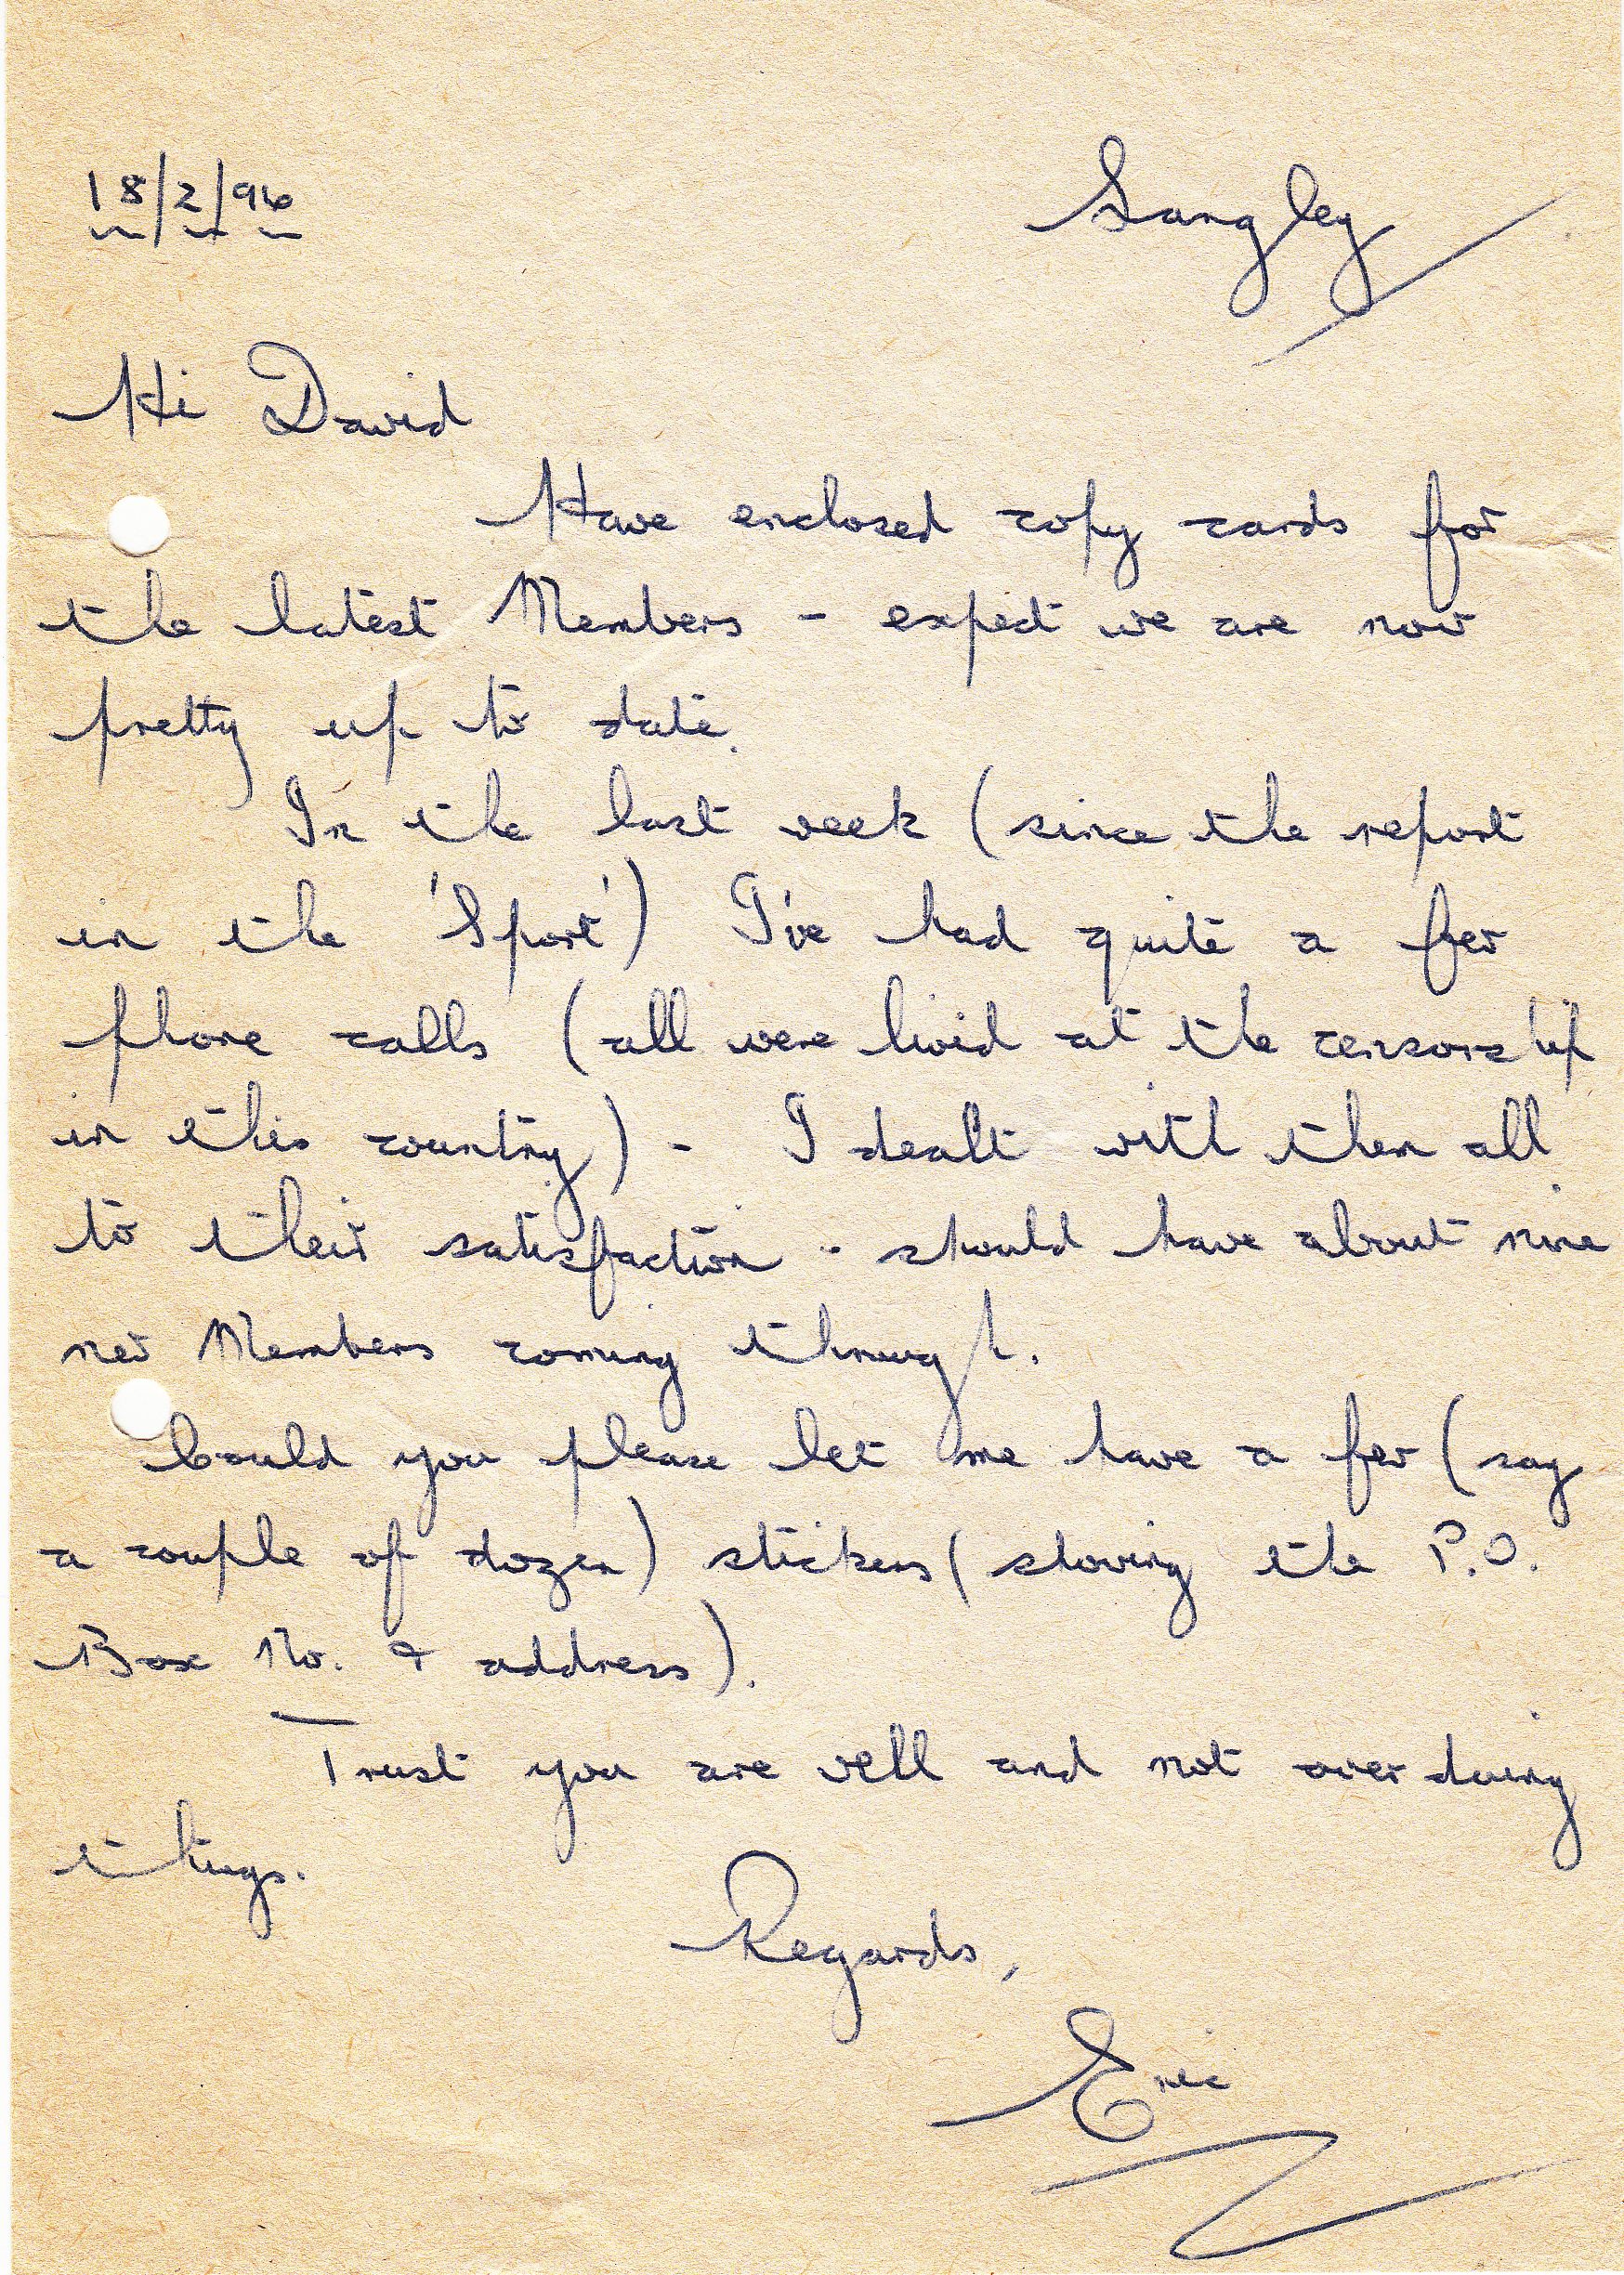 18/2/96
Sangley
Hi David
Have enclosed copy cards for
the latest Members - expect we are now
pretty up to date.
In the last week (since the report
in the 'Sport') I've had quite a few
phone calls (all were livid at the censorship
in this country) - I dealt with them all
to their satisfaction - should have about nine
new Members coming through.
Could you please let me have a few (say
a couple of dozen) stickers (showing the P.O.
Box No. & address).
Trust you are well and not over doing
things.
Regards,
Eric